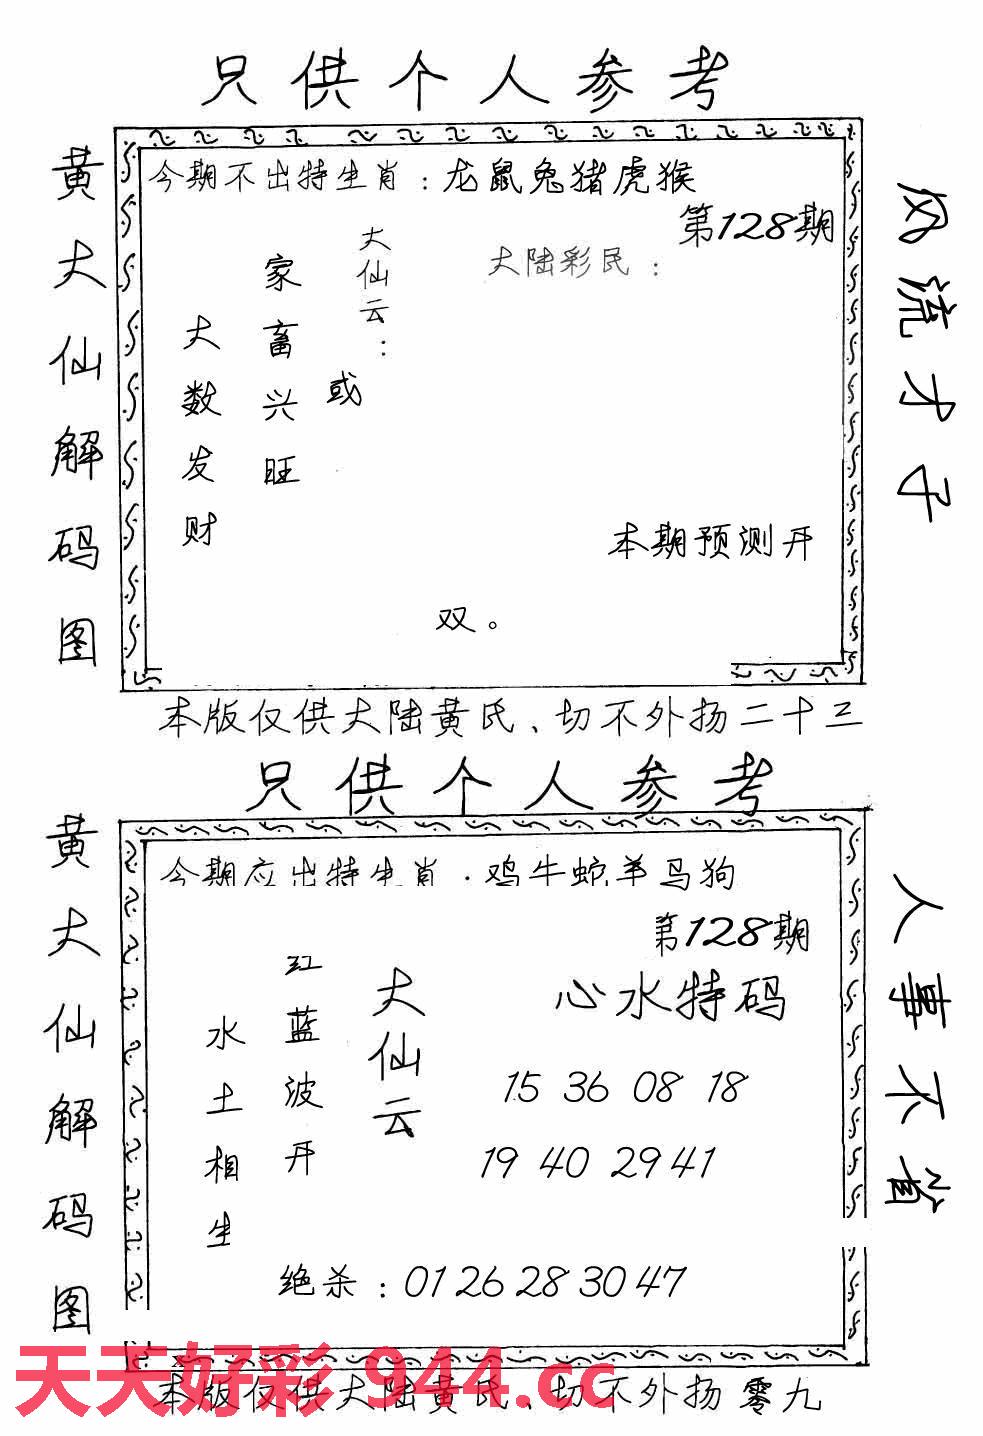 只供个人参考
黄大仙解码图
今期不出特生肖：龙鼠兔猪虎猴
第128期
大陆彩民：
大仙云：
或
家畜兴旺
大数发财
本期预测开
双。
风流才子
本版仅供大陆黄氏、切不外扬二十三
只供个人参考
黄大仙解码图
今期应出特生肖：鸡牛蛇羊马狗
第128期
心水特码
大仙云
红蓝波开
水土相生
15 36 08 18
19 40 29 41
绝杀：01 26 28 30 47
人事不省
天天好彩 944.cc
本版仅供大陆黄氏、切不外扬 零九